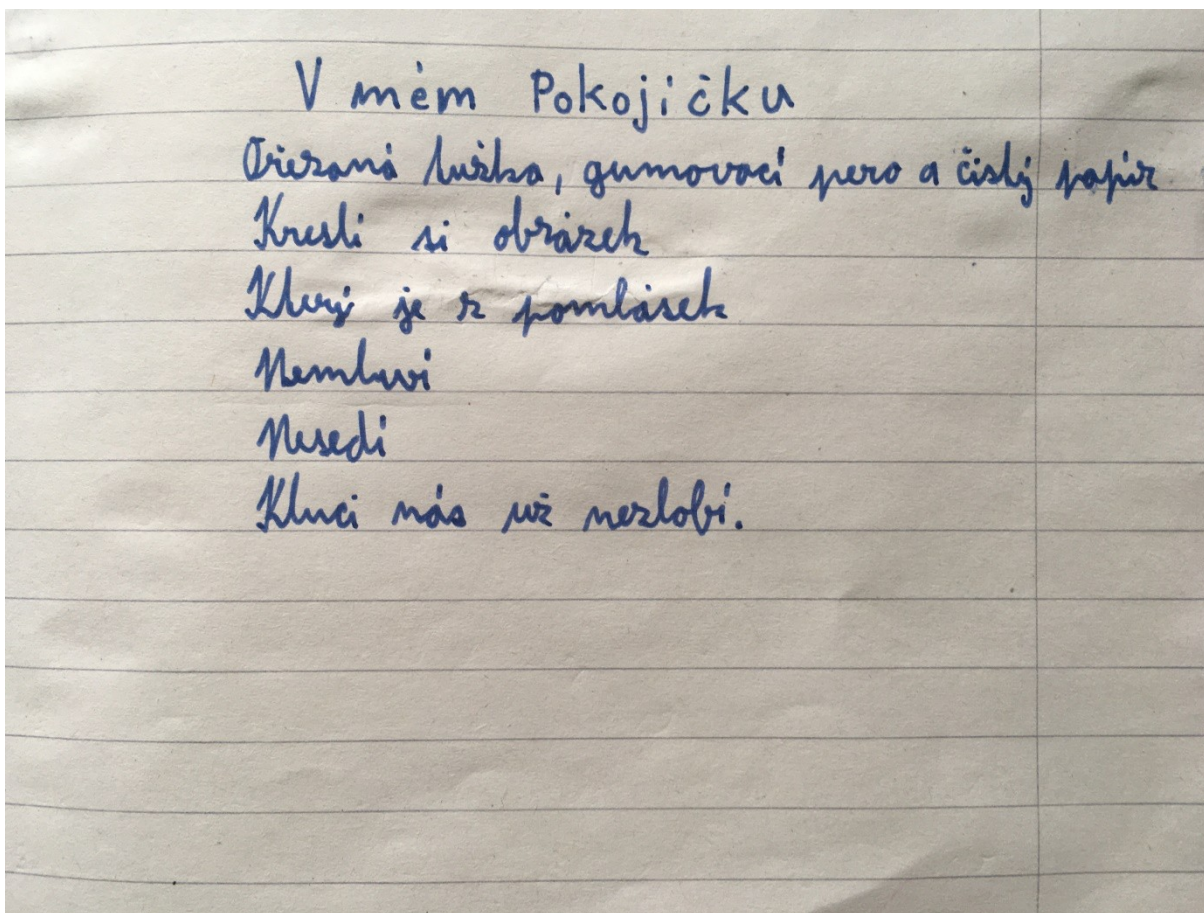 V mém Pokojíčku
Ořezaná tužka, gumovací pero a čistý papír
Kreslí si obrázek
Který je z pomlásek
Nemluví
Nesedí
Kluci nás už nezlobí.